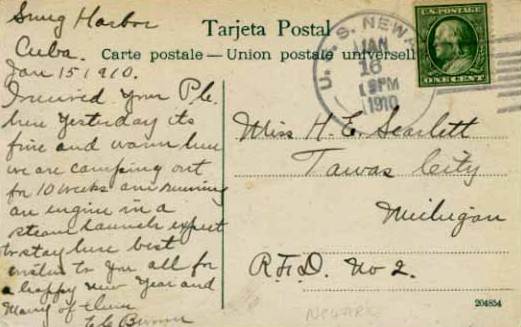 Snug Harbor
Cuba.
Jan 15 1910.
I received your P.c.
here yesterday its
fine and warm here
we are camping out
for 10 weeks am running
an engine in a
steam launch expect
to stay here best
wishes to you all for
a happy new Year and
Many of them
Tarjeta Postal
Carte postale — Union postale universelle
U. S. S. NEWA
JAN
16
PM
1910
U.S. POSTAGE
ONE CENT
Miss H. E. Scarlett
Tawas City
Michigan
R.F.D. No 2.
204854
NEWARK